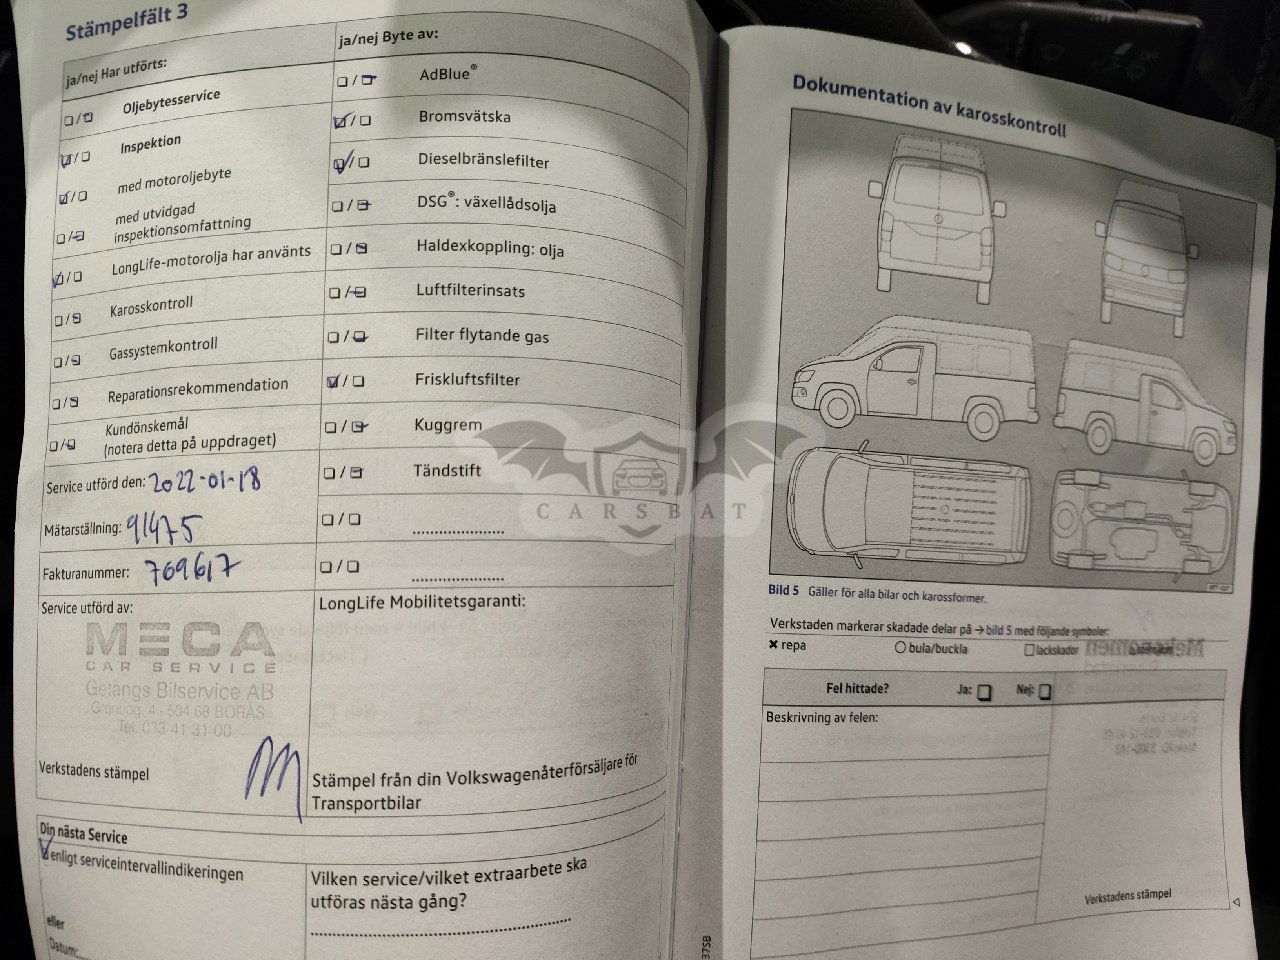 Stämpelfält 3
ja/nej Har utförts:
Oljebytesservice
Inspektion
med motoroljebyte
med utvidgad
inspektionsomfattning
LongLife-motorolja har använts
Karosskontroll
Gassystemkontroll
Reparationsrekommendation
Kundönskemål
(notera detta på uppdraget)
Service utförd den: 2022-01-18
Mätarställning: 91475
Fakturanummer: 709617
Service utförd av:
MECA
CAR SERVICE
Getängs Bilservice AB
504 68 BORÅS
Tel. 033-41 31 00
Verkstadens stämpel
ja/nej Byte av:
AdBlue®
Bromsvätska
Dieselbränslefilter
DSG®: växellådsolja
Haldexkoppling: olja
Luftfilterinsats
Filter flytande gas
Friskluftsfilter
Kuggrem
Tändstift
LongLife Mobilitetsgaranti:
Stämpel från din Volkswagenåterförsäljare för
Transportbilar
Din nästa Service
enligt serviceintervallindikeringen
eller
Datum:
Vilken service/vilket extraarbete ska
utföras nästa gång?
CARSBAT
Dokumentation av karosskontroll
Bild 5 Gäller för alla bilar och karossformer.
Verkstaden markerar skadade delar på → bild 5 med följande symboler:
✖ repa
bula/buckla
lackskador
Fel hittade?
Ja:
Nej:
Beskrivning av felen:
Verkstadens stämpel